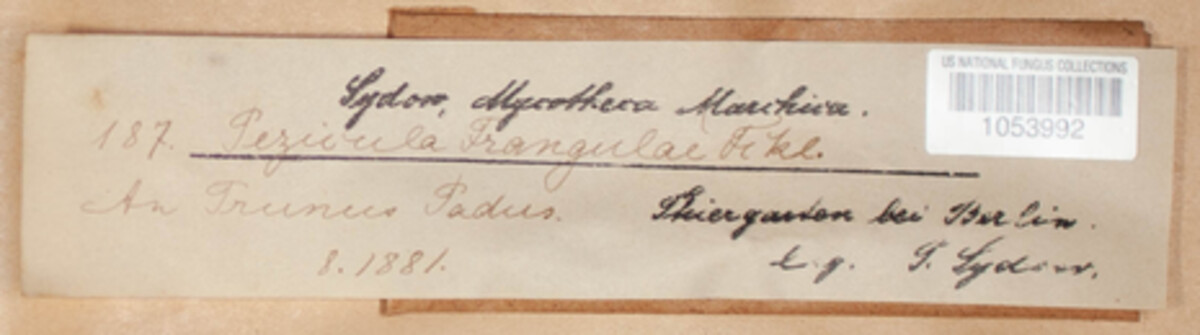 Sydow, Mycotheca Marchica.
187. Pezicula Frangulae Fckl.
An Prunus Padus. Thiergarten bei Berlin.
8. 1881. leg. P. Sydow.
US NATIONAL FUNGUS COLLECTIONS
1053992